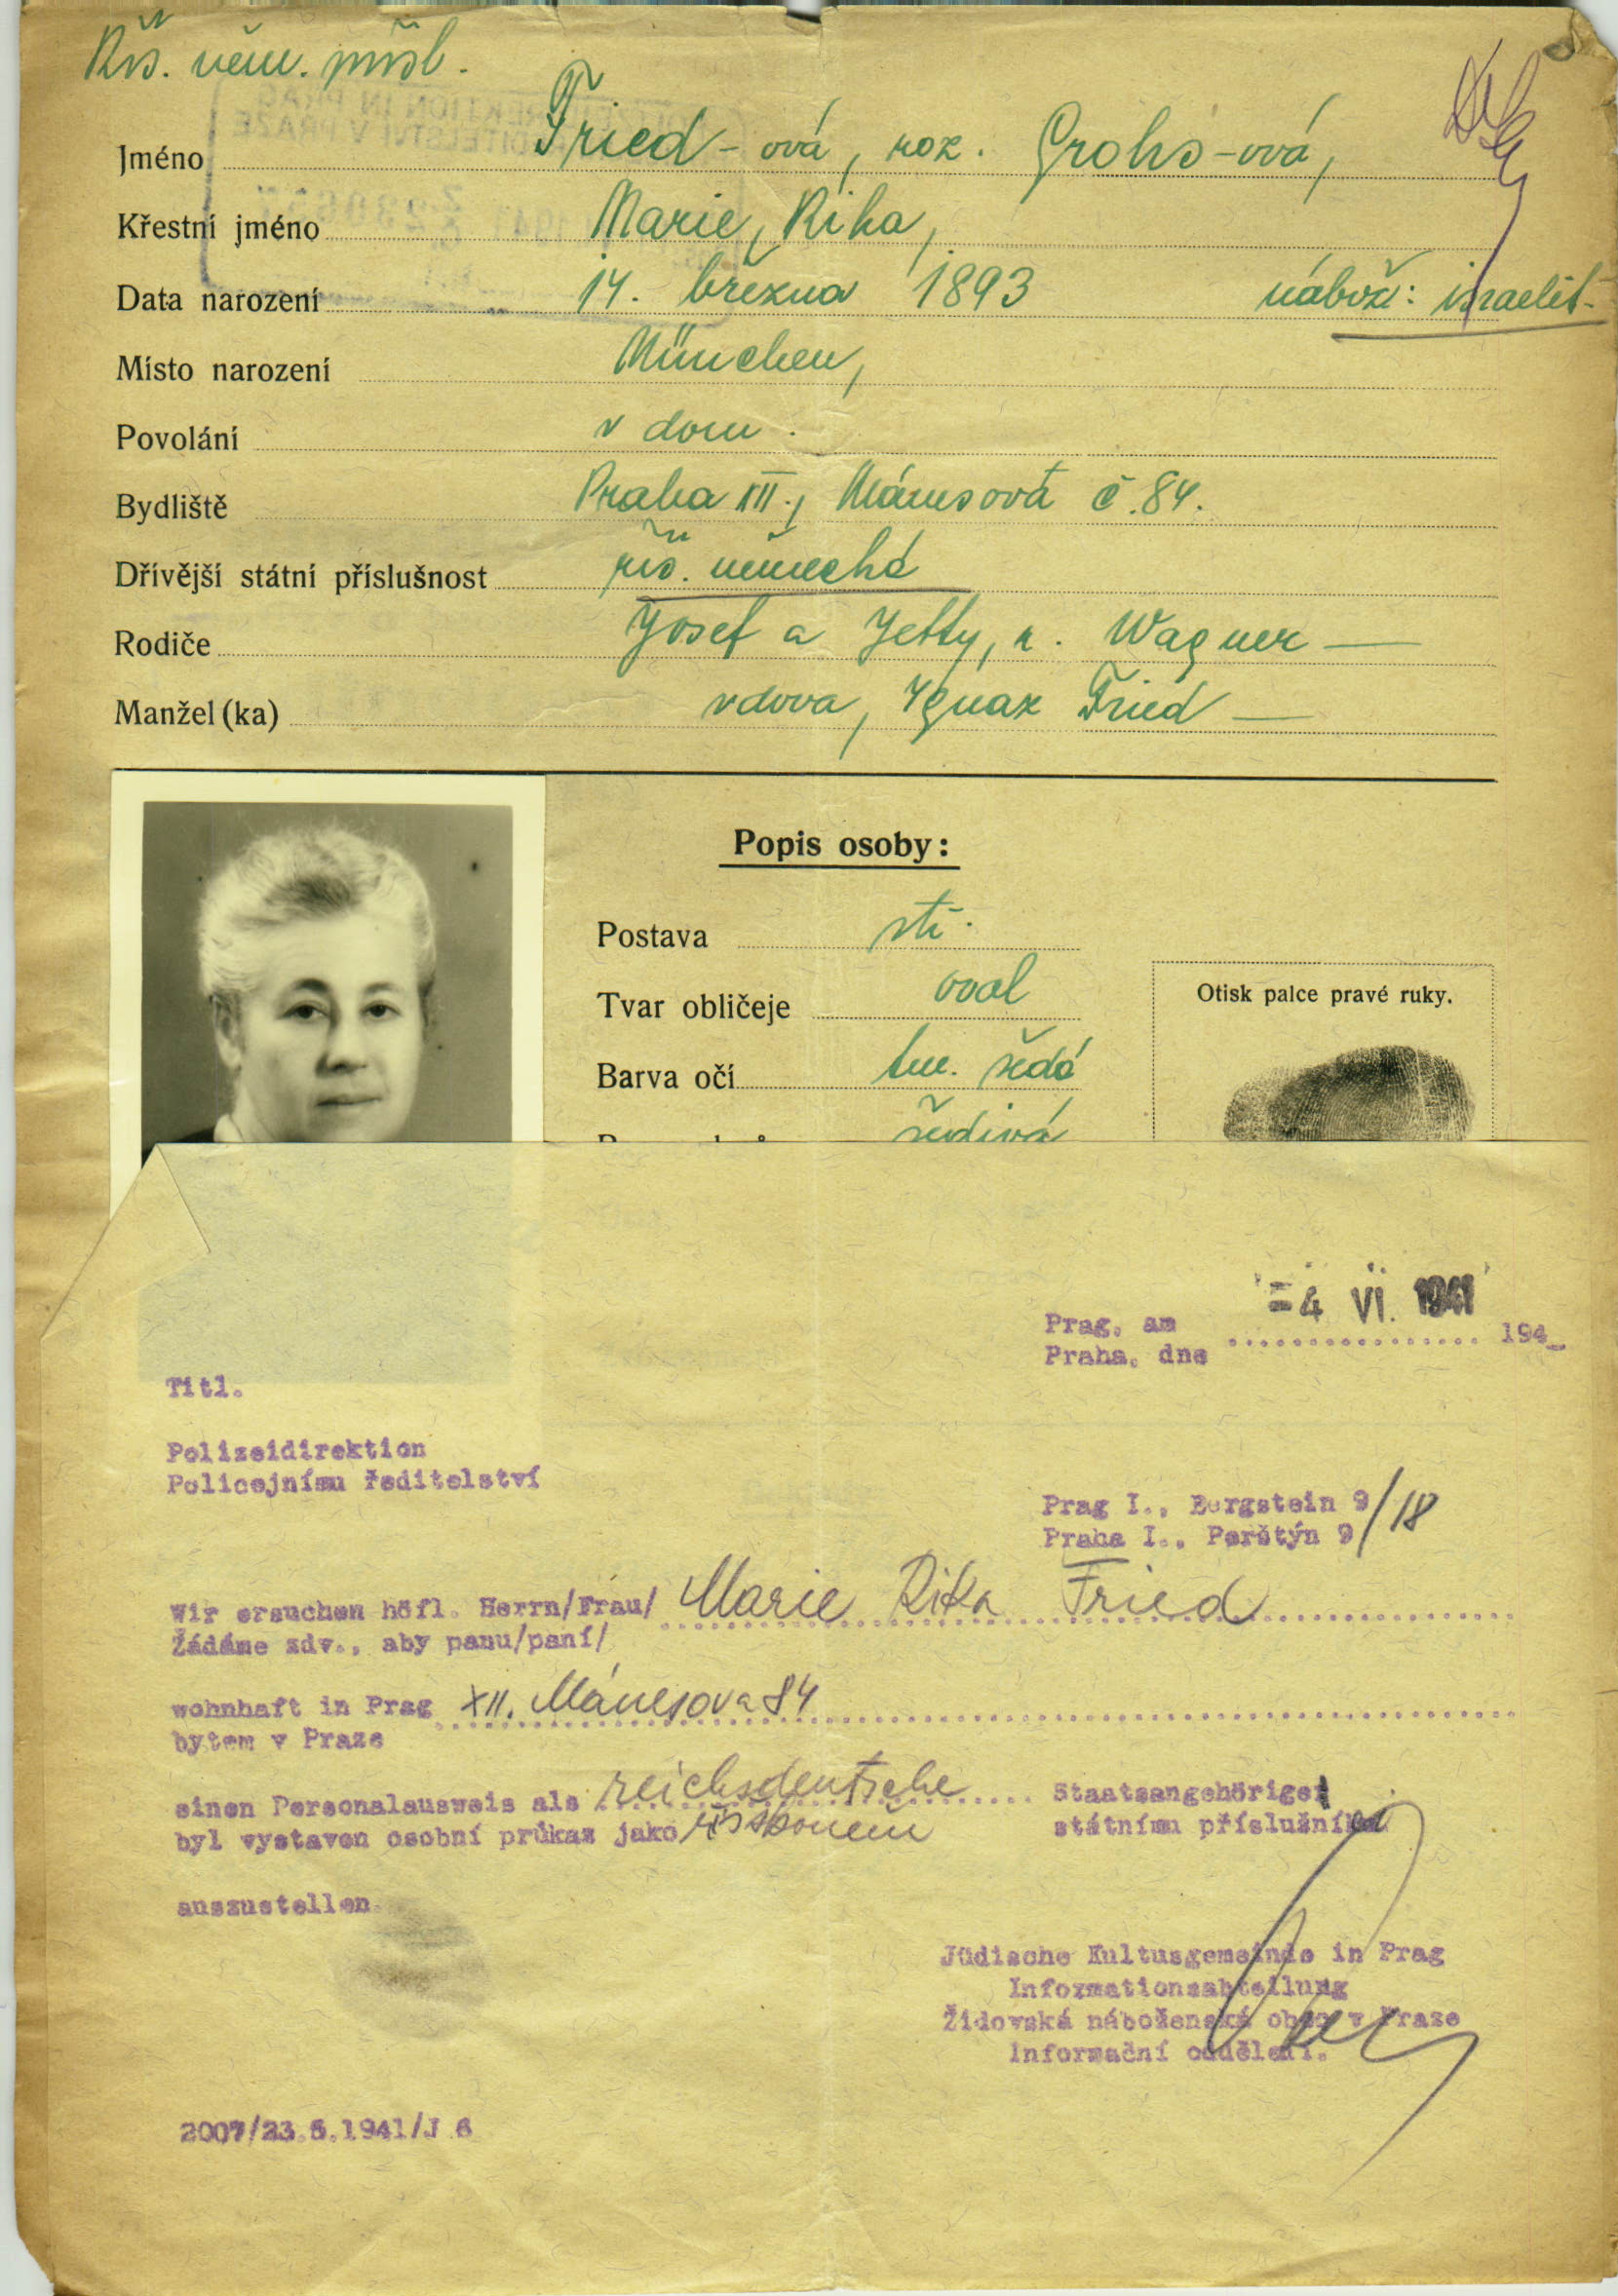 Říš. něm. přísl.
Jméno Fried-ová, roz. Grohs-ová,
Křestní jméno Marie, Rika,
Data narození 14. března 1893 nábož: israelit-
Místo narození München,
Povolání v dom.
Bydliště Praha XII., Mánesová č. 84.
Dřívější státní příslušnost říš. německá
Rodiče Josef a Jetty, r. Wagner —
Manžel(ka) vdova, Ignaz Fried —
Popis osoby:
Postava stř.
Tvar obličeje oval
Otisk palce pravé ruky.
Barva očí tm. šedá
šedivá
=4 VI. 1941
Prag, am 194_
Praha, dne
Titl.
Polizeidirektion
Policejnímu ředitelství
Prag I., Bergstein 9/18
Praha I., Perštýn 9
Wir ersuchen höfl. Herrn/Frau/ Marie Rika Fried
Žádáme zdv., aby panu/paní/
wohnhaft in Prag XII. Mánesova 84
bytem v Praze
einen Personalausweis als reichsdeutsche Staatsangehörige
byl vystaven osobní průkaz jako státnímu
auszustellen
Jüdische Kultusgemeinde in Prag
Informationsabteilung
Židovská náboženská obec v Praze
Informační oddělení.
2007/23.5.1941/J 6